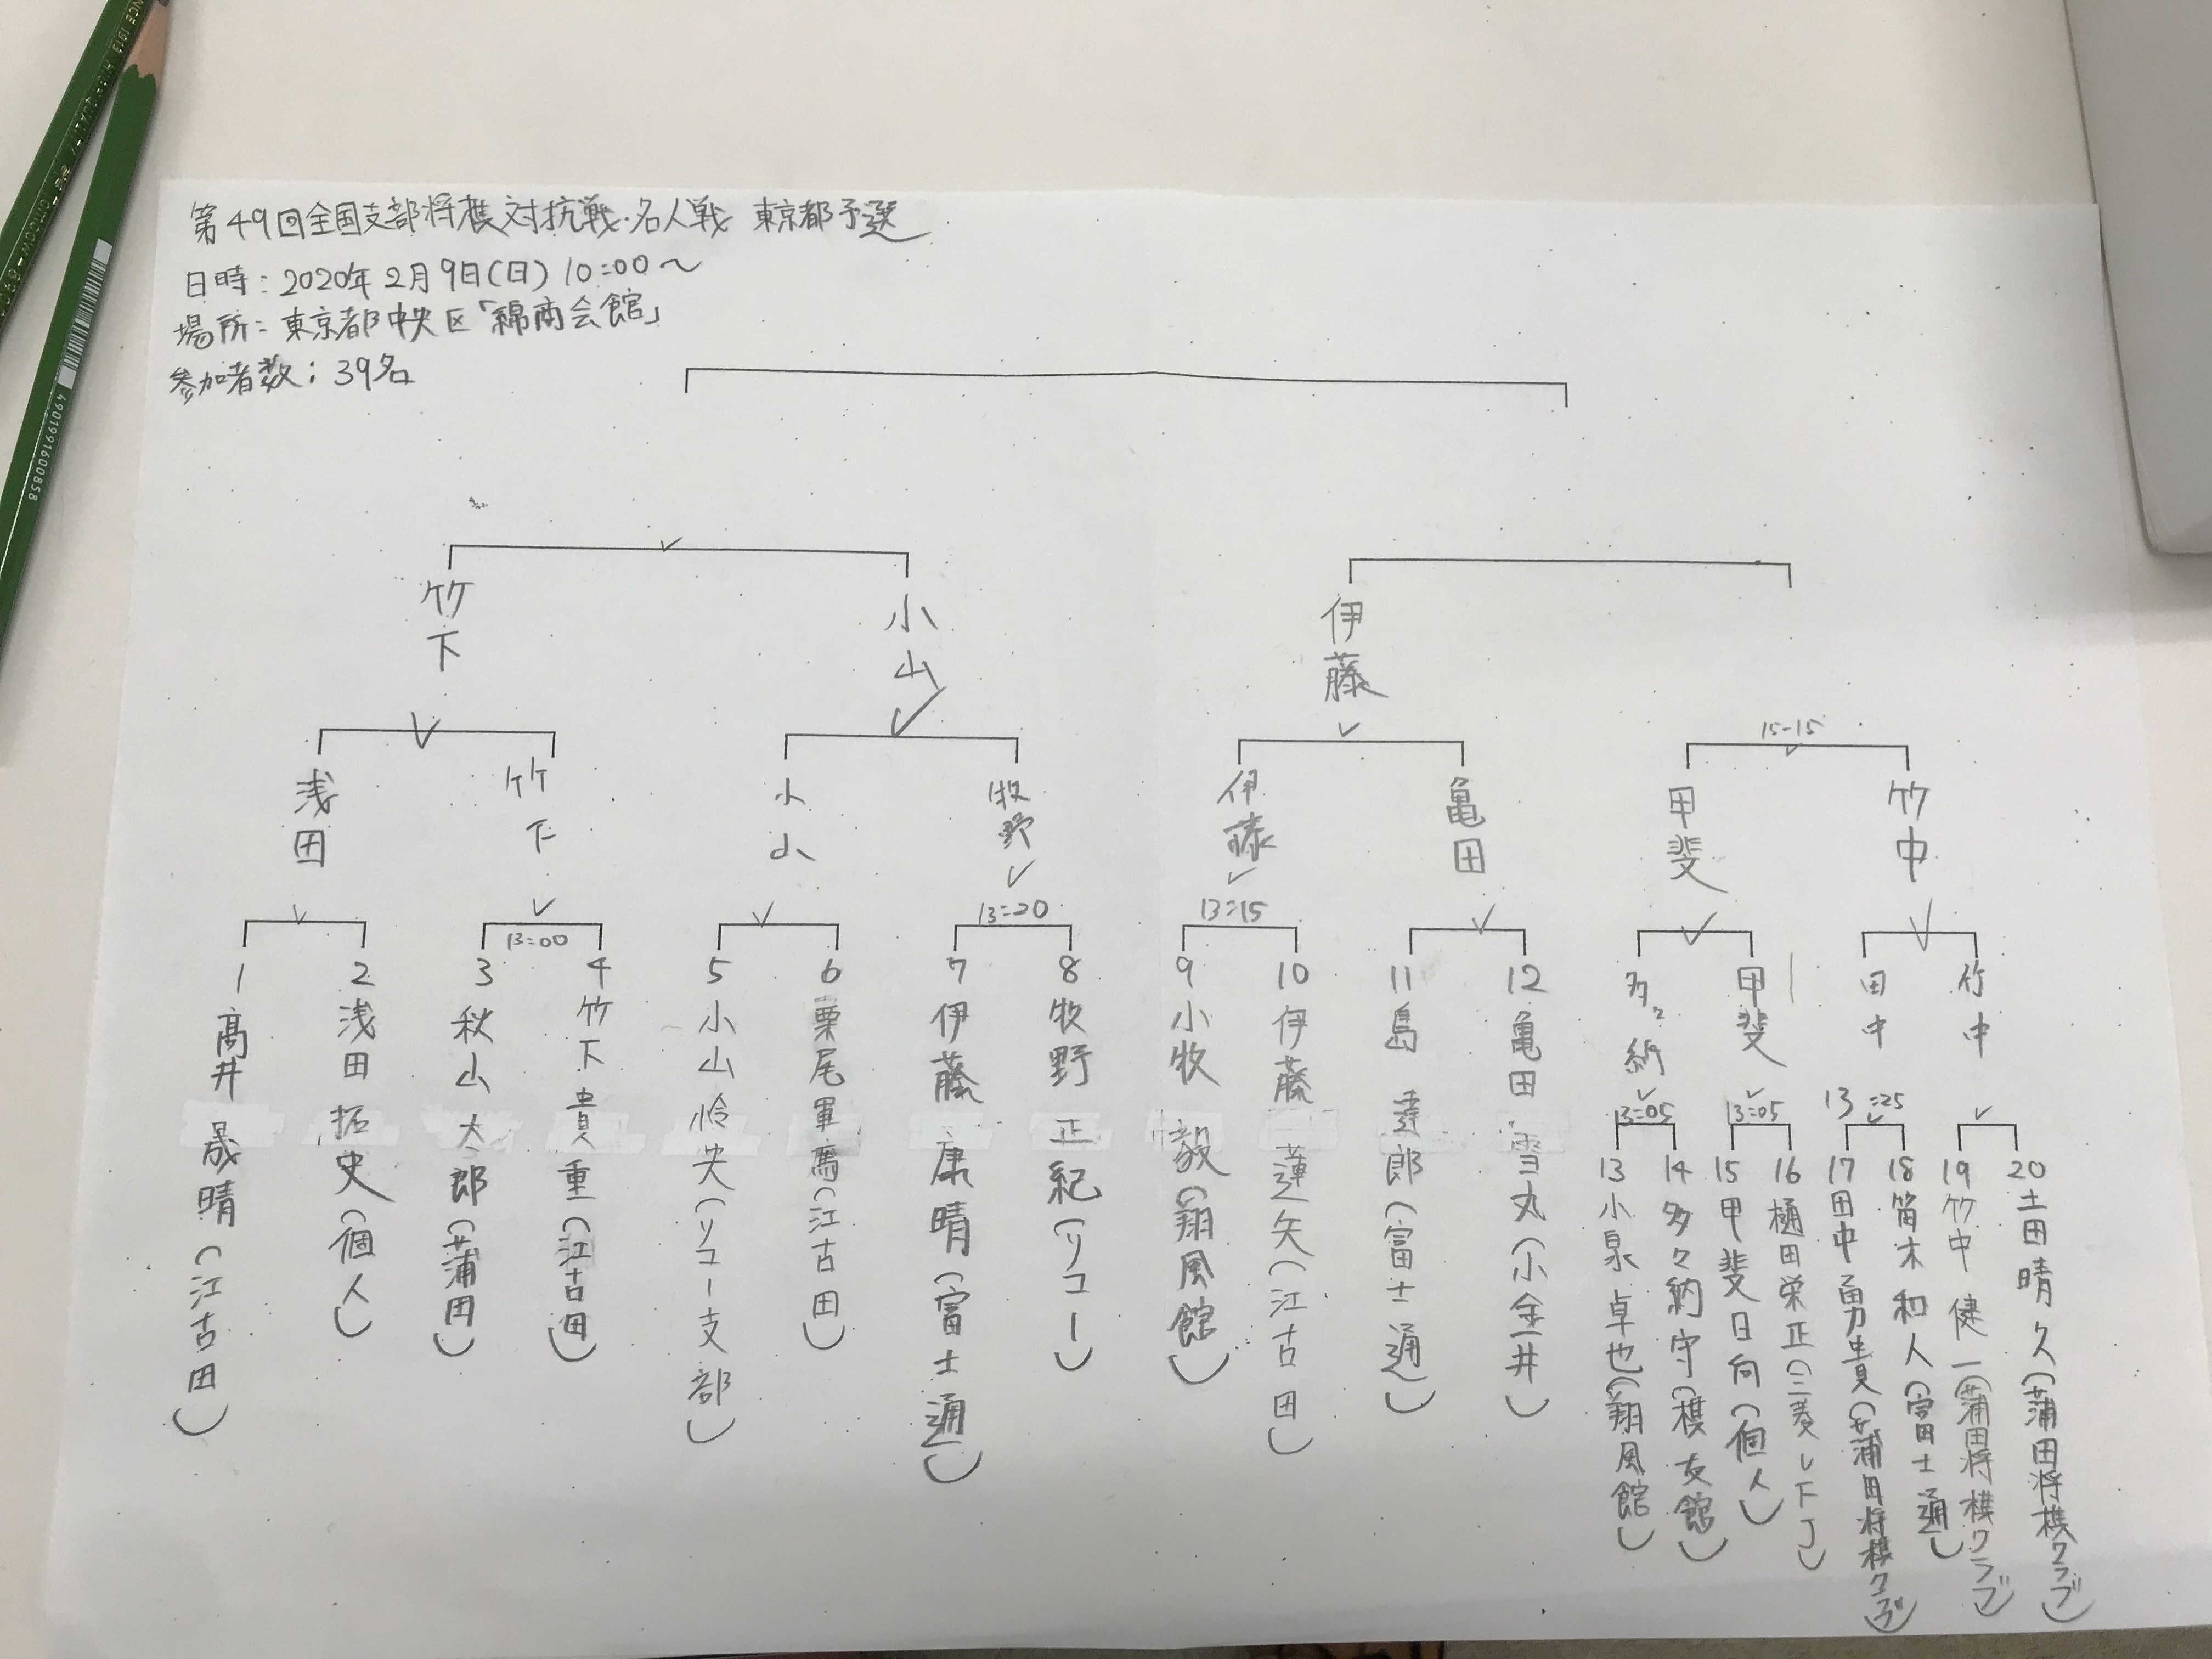 第49回全国支部将棋対抗戦・名人戦 東京都予選
日時：2020年2月9日(日) 10:00〜
場所：東京都中央区「綿商会館」
参加者数：39名
竹下
小山
伊藤
15-15
浅田
竹下
小山
牧野
伊藤
亀田
甲斐
竹中
13:00
13:20
13:15
多々納
甲斐
田中
竹中
13:05
13:05
13:25
1 高井 晟晴(江古田)
2 浅田拓史(個人)
3 秋山太郎(蒲田)
4 竹下貴重(江古田)
5 小山怜央(リコー支部)
6 栗尾軍馬(江古田)
7 伊藤康晴(富士通)
8 牧野正紀(リコー)
9 小牧毅(翔風館)
10 伊藤蓮矢(江古田)
11 島 達郎(富士通)
12 亀田雪丸(小金井)
13 小泉卓也(翔風館)
14 多々納守(棋友館)
15 甲斐日向(個人)
16 樋田栄正(三菱UFJ)
17 田中勇貴(蒲田将棋クラブ)
18 笛木和人(富士通)
19 竹中健一(蒲田将棋クラブ)
20 土田晴久(蒲田将棋クラブ)
4901991600858